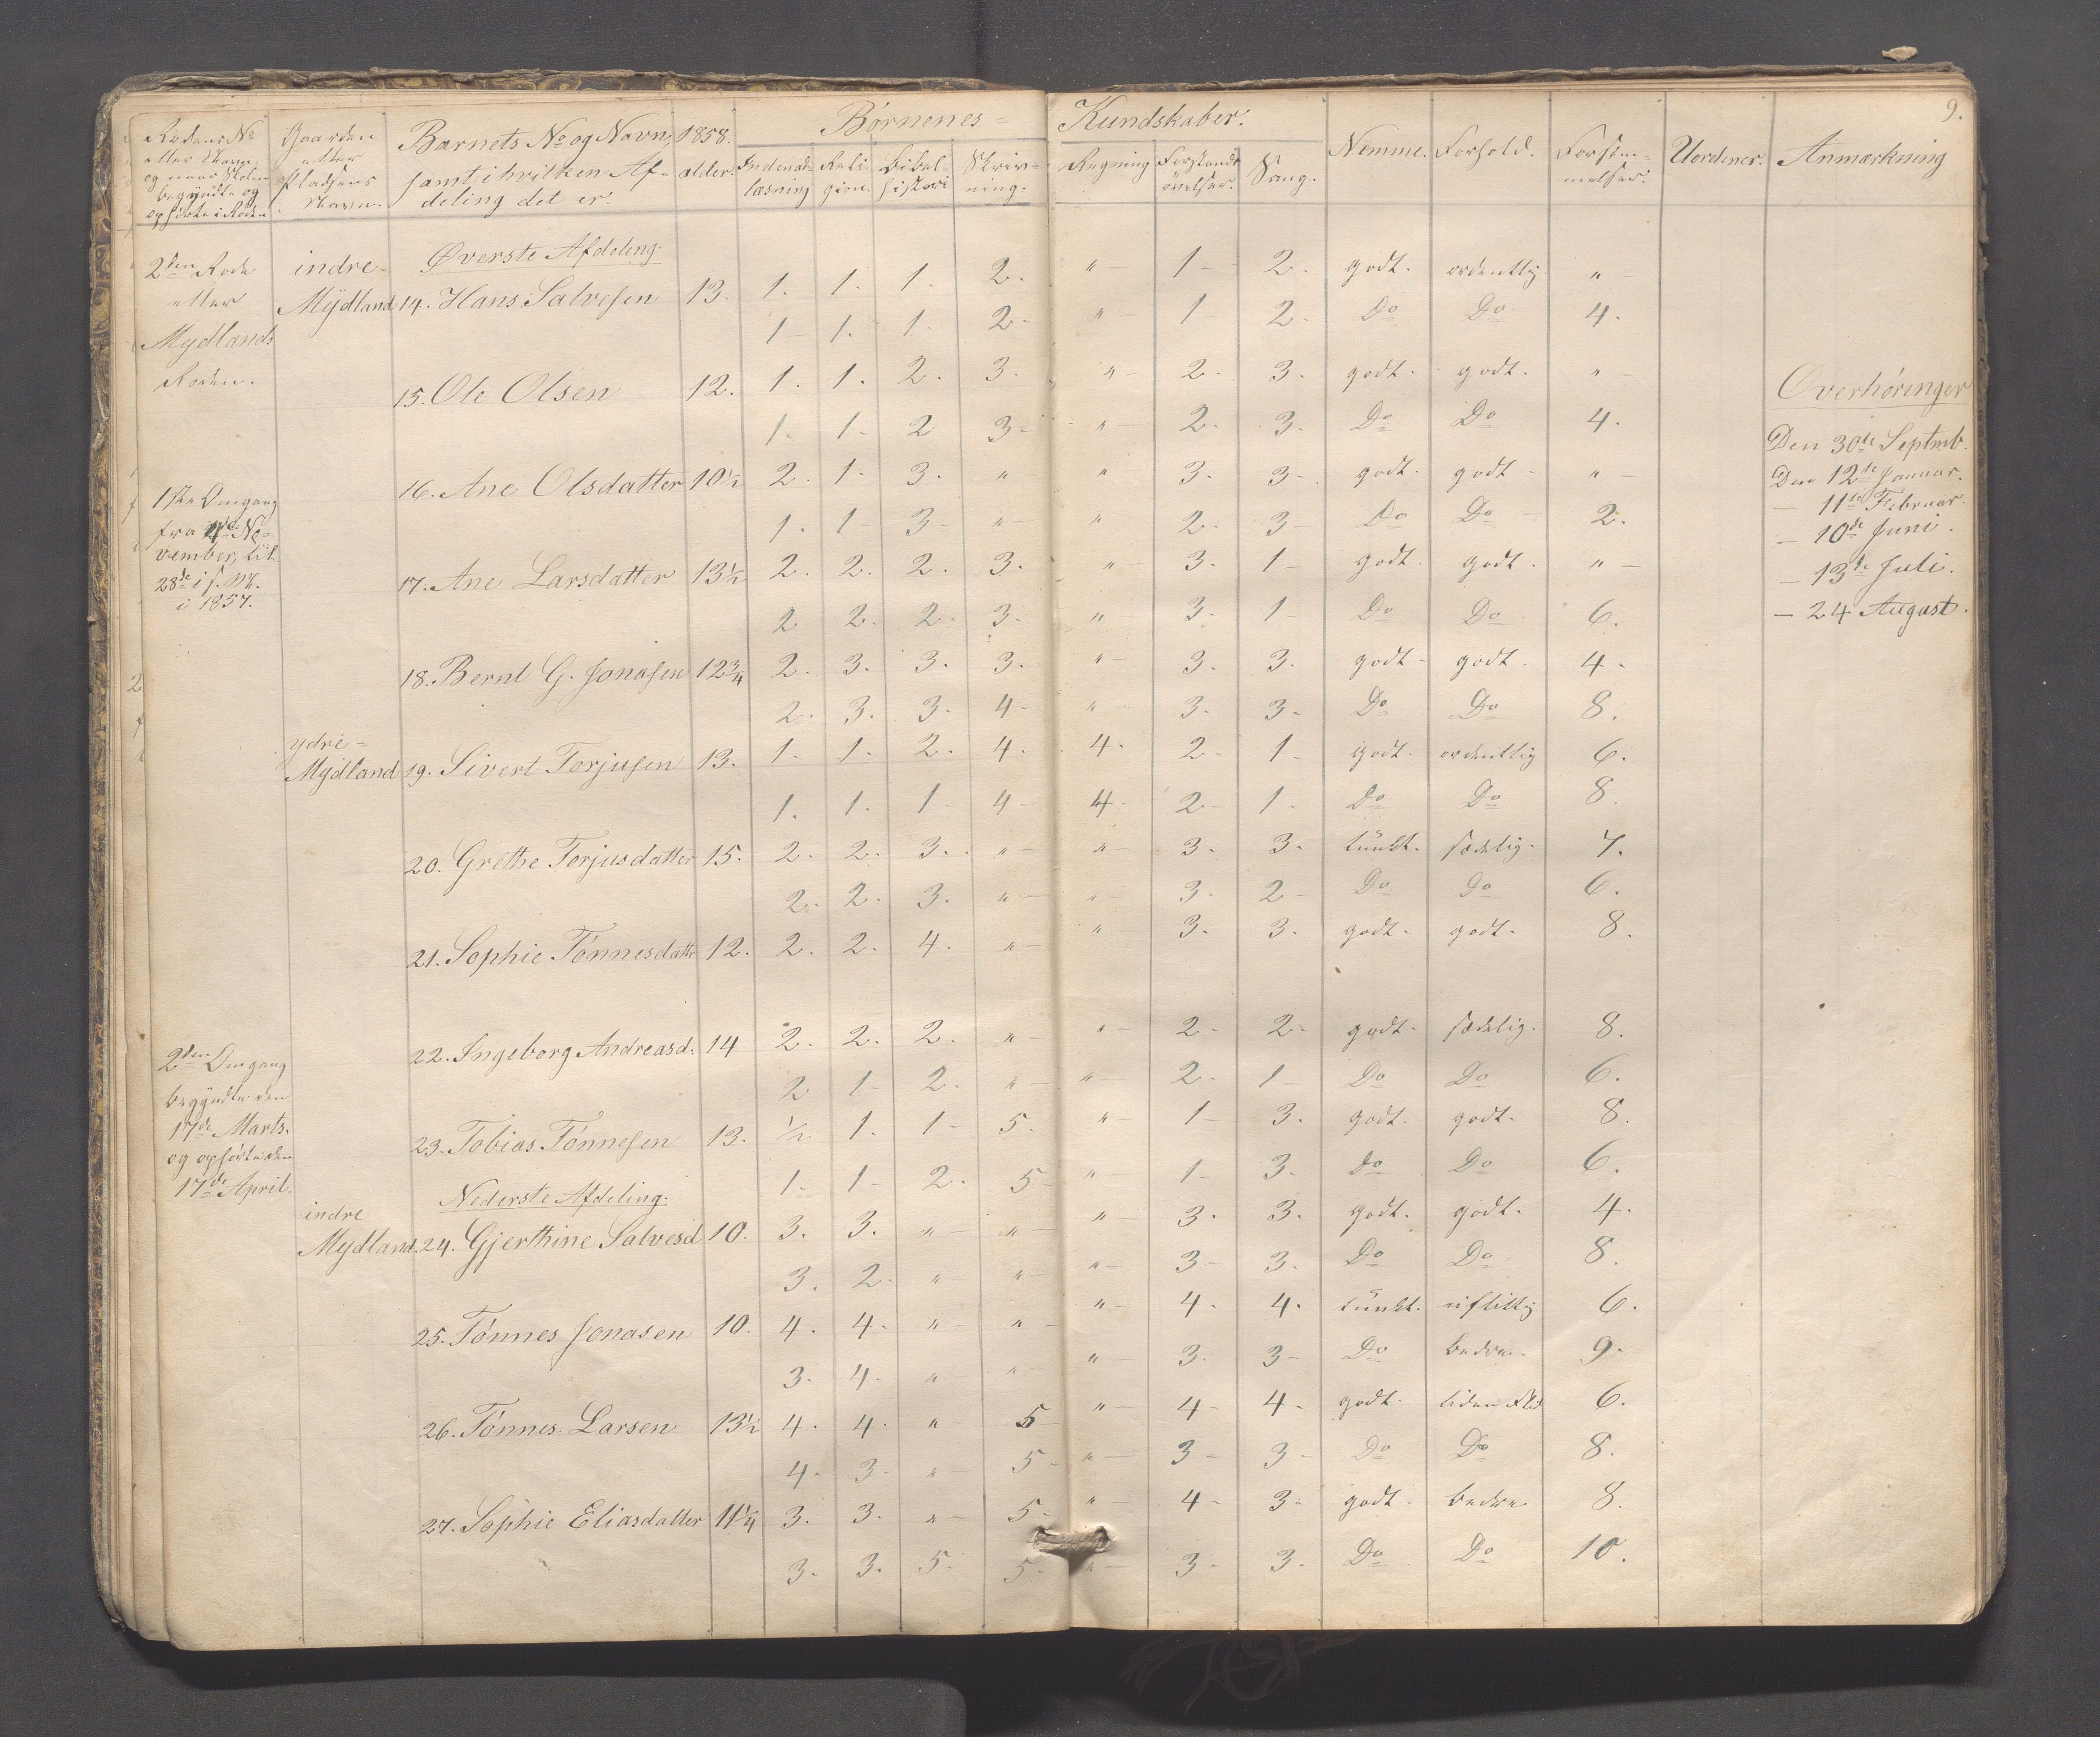 9.
Børnenes= Kundskaber.
Rodens No eller Navn, og naar Skolen begyndte og ophørte i Roden
Gaarden eller Pladsens Navn.
Barnets No og Navn, samt i hvilken Afdeling det er.
1858. alder.
Indenadlæsning
Religion.
Bibelhistori
Skrivning.
Regning
Forstandsøvelser.
Sang.
Nemme.
Forhold.
Forsømmelser.
Uordener.
Anmærkning
2den Rode eller Mydlands Roden.
Øverste Afdeling.
indre Mÿdland 14. Hans Salvesen 13. 1. 1. 1. 2. " 1 2. godt. ordentlig "
1 1. 1. 2. " 1 2. Do Do 4.
15. Ole Olsen 12. 1. 1. 2. 3. " 2. 3. godt. godt. "
1. 1. 2 3 " 2. 3. Do Do 4.
16. Ane Olsdatter 10½ 2. 1. 3. " " 3. 3 godt. godt "
1. 1 3 " " 2. 3 Do Do 2.
1ste Omgang fra 4de November, til 28de i s. M. i 1857.
17. Ane Larsdatter 13½ 2. 2. 2. 3. " 3. 1 godt. godt. "
2 2. 2. 3. " 3. 1 Do Do 6.
18. Bernt G. Jonasen 12¾ 2. 3. 3. 3. " 3. 3. godt godt. 4.
2. 3. 3. 4 " 3. 3. Do Do 8.
ydre= Mÿdland 19. Sivert Torjusen 13. 1. 1. 2. 4. 4. 2. 1 godt. ordentlig 6.
1. 1. 1 4 4 2. 1. Do Do 8.
20. Grethe Torjusdatter 15. 2. 2. 3. " " 3. 3. tungt. sædelig. 7.
2. 2. 3. " " 3. 2 Do Do 6.
21. Sophie Tønnesdattr 12. 2. 2. 4. " " 3. 3. godt. godt. 8.
22. Ingeborg Andreasd. 14 2. 2. 2. " " 2. 2 godt. sædelig. 8.
2 1 2. " " 2. 1 Do Do 6.
2den Omgang begyndte den 17de Marts. og ophørte den 17de April.
23. Tobias Tønnesen 13. ½ 1. 1 5. " 1 3. godt. godt. 8.
1. 1 2. 5 " 1 3. Do Do 6.
Nederste Afdeling.
indre Mydland. 24. Gjerthine Salvesd 10. 3. 3. " " " 3. 3. godt. godt. 4.
3. 2. " " " 3 3. Do Do 8.
25. Tønnes Jonasen 10. 4. 4. " " " 4. 4. tungt. uflittig 6.
3. 4. " " " 3. 3 Do bedre. 9.
26. Tønnes Larsen 13½ 4. 4. " 5 " 4 4. godt. liden Flid 6.
4. 3. " 5 " 3 3 Do Do 8.
27. Sophie Eliasdatter 11¼ 3. 3. " 5. " 4 3. godt. bedre 8.
3. 3. 5. 5. " 3 3. Do Do 10.
Overhøringer
Den 30te Septmb.
Den 12te Januar.
— 11te Februar.
— 10de Juni.
— 13de Juli.
— 24 August.